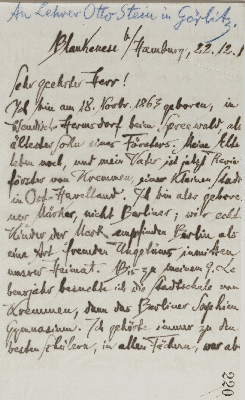 An Lehrer Otto Stein in Görlitz.
Blankenese b/Hamburg, 22.12.
Sehr geehrter Herr!
Ich bin am 18. Novbr. 1863 geboren, in
Wendisch-Hermsdorf beim Spreewald, als
ältester Sohn eines Försters. Meine Eltern
leben noch, und mein Vater ist jetzt Revier-
förster von Kremmen, einer kleinen Stadt
in Ost-Havelland. Ich bin also gebore-
ner Märker, nicht Berliner; wir echten
Kinder der Mark empfinden Berlin als
eine Art fremden Ungetüms inmitten
unserer Heimat. Bis zu meinem 9. Le-
bensjahr besuchte ich die Stadtschule von
Kremmen, dann das Berliner Sophien-
Gymnasium. Ich gehörte immer zu den
besten Schülern, in allen Fächern, war ab
220